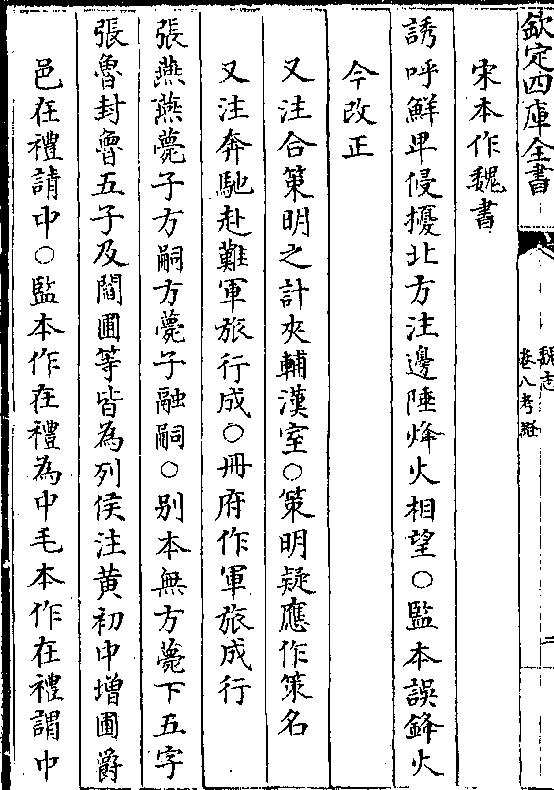 欽定四庫全書
魏志
卷八考證
二
宋本作魏書
誘呼鮮卑侵擾北方注邊陲烽火相望○監本誤鋒火
今改正
又注合策明之計夾輔漢室○策明疑應作策名
又注奔馳赴難軍旅行成○冊府作軍旅成行
張燕燕薨子方嗣方薨子融嗣○别本無方薨下五字
張魯封魯五子及閻圃等皆為列侯注黄初中增圃爵
邑在禮請中○監本作在禮為中毛本作在禮謂中